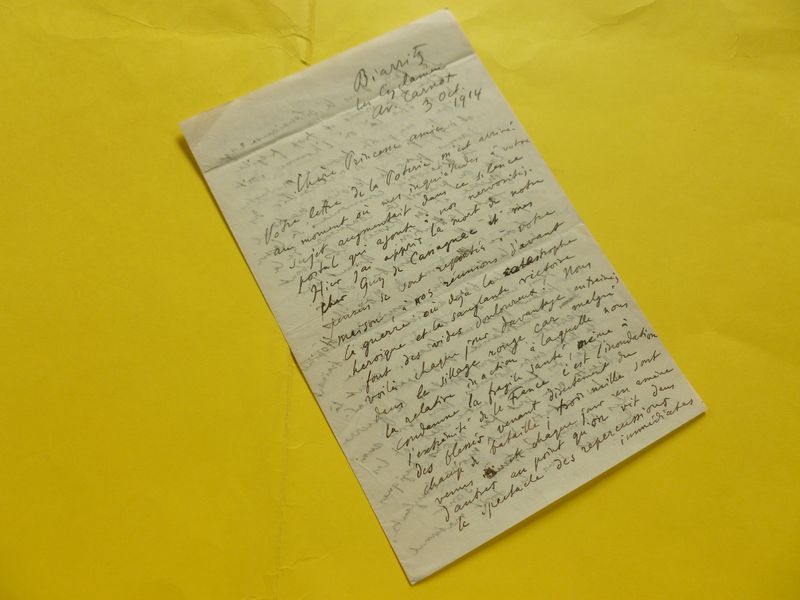 Biarritz
Les Cyclamens
Av. Carnot
3 Oct. 1914
Chère Princesse amie
Votre lettre de la Poterie m'est arrivé
au moment où mes inquiétudes à votre
sujet augmentait dans ce silence
postal qui ajoute à nos nervosités.
Hier j'ai appris la mort de notre
cher Guy de Cassagnac et mes
pensées se sont reportés à votre
maison, à nos réunions d'avant
la guerre où déjà la catastrophe
héroïque et la sanglante victoire
font des vides douloureux! Nous
voilà chaque jour davantage entraînés
dans le sillage rouge car malgré
la relative inaction à laquelle nous
condamne la fragile santé, même à
l'extrémité de la France c'est l'inondation
des blessés venant directement du
champ de bataille; trois mille sont
venus et chaque jour en amène
d'autres au point qu'on vit dans
le spectacle des répercussions
immédiates